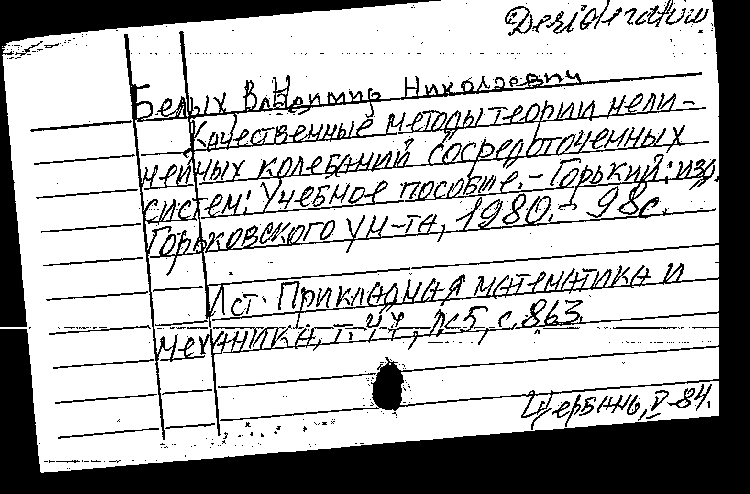 Desiderativ
Белых Владимир Николаевич
Качественные методы теории нели-
нейных колебаний сосредоточенных
систем: Учебное пособие. - Горький: изд.
Горьковского ун-та, 1980. - 98с.
Ист. Прикладная математика и
механика, т. 47, №5, с. 863.
Щербань, V-84.